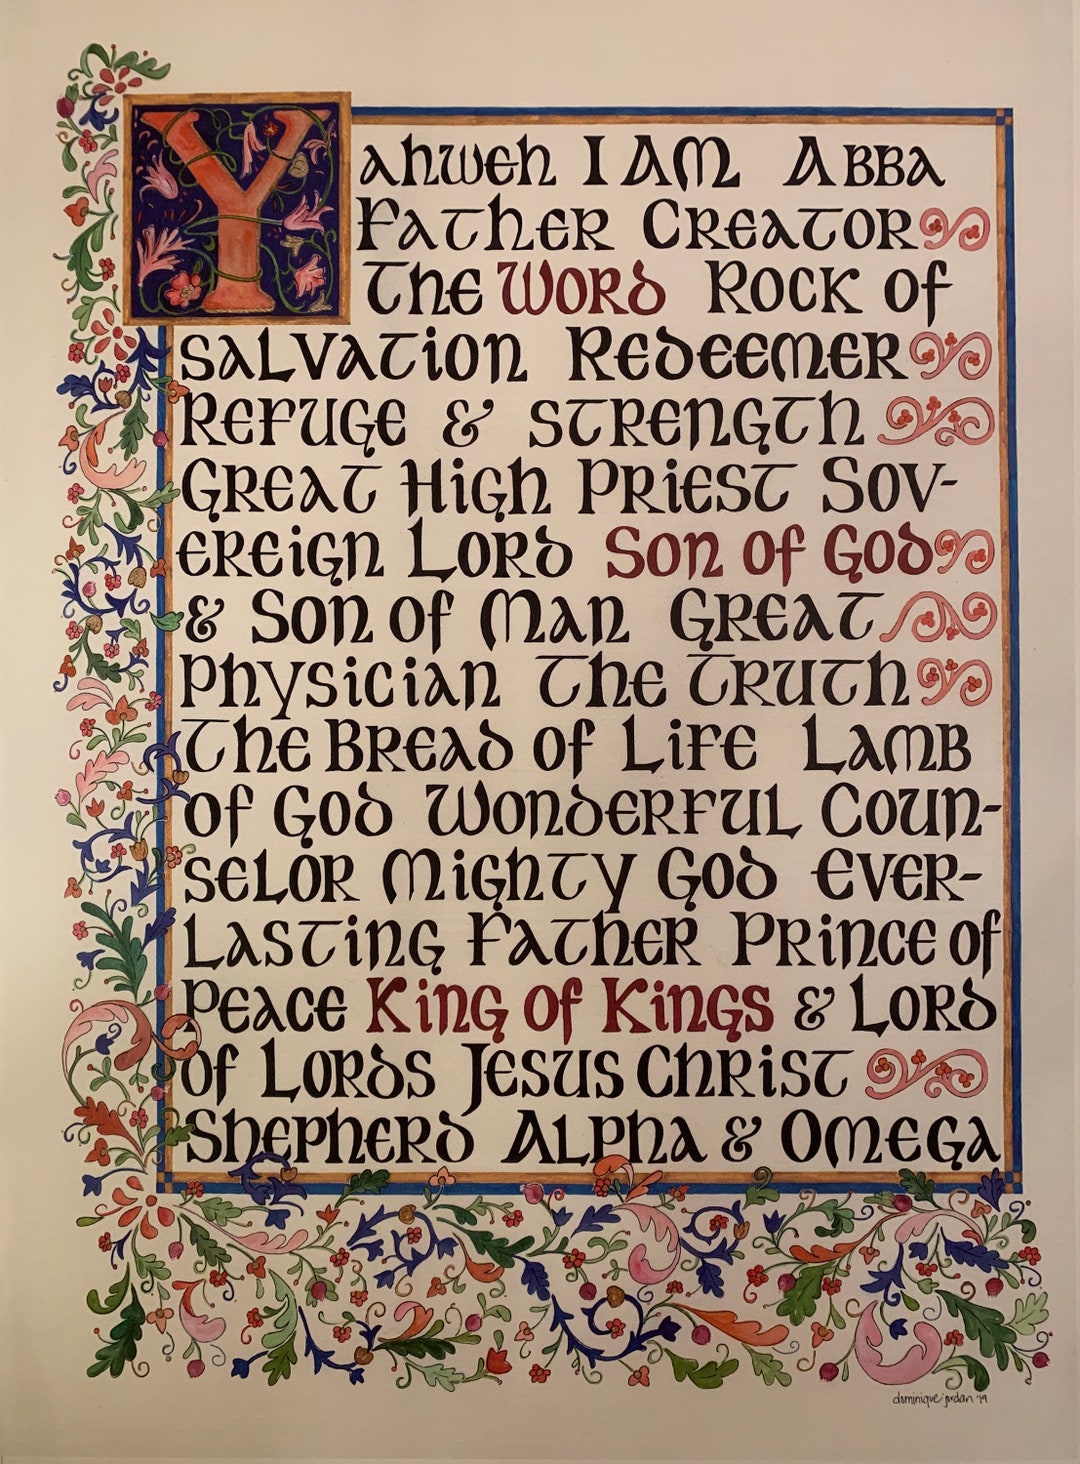 Yahweh I AM Abba
Father Creator
The Word Rock of
Salvation Redeemer
Refuge & Strength
Great High Priest Sov-
ereign Lord Son of God
& Son of Man Great
Physician The Truth
The Bread of Life Lamb
of God Wonderful Coun-
selor Mighty God Ever-
lasting Father Prince of
Peace King of Kings & Lord
of Lords Jesus Christ
Shepherd Alpha & Omega
dominique jordan '79